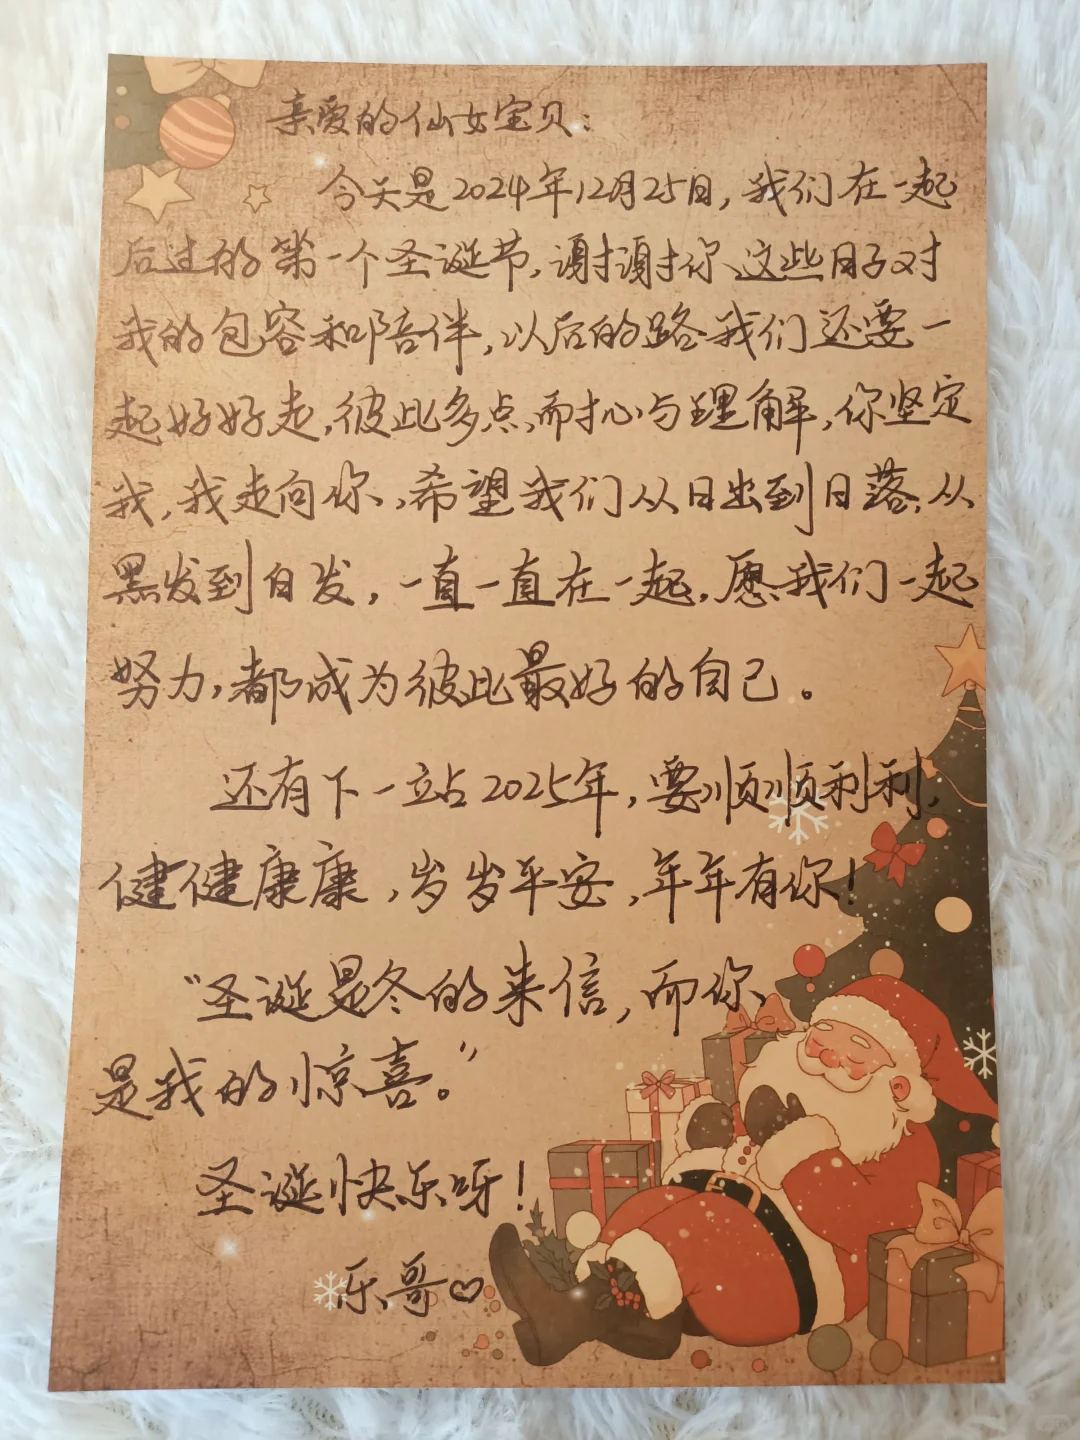 亲爱的仙女宝贝：
今天是2024年12月25日，我们在一起
后过的第一个圣诞节，谢谢你这些日子对
我的包容和陪伴，以后的路我们还要一
起好好走，彼此多点耐心与理解，你坚定
我，我走向你，希望我们从日出到日落，从
黑发到白发，一直一直在一起，愿我们一起
努力，都成为彼此最好的自己。
还有下一站2025年，要顺顺利利，
健健康康，岁岁平安，年年有你！
“圣诞是冬的来信，而你
是我的惊喜。”
圣诞快乐呀！
乐哥♡